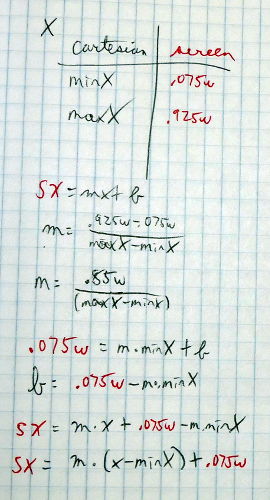 X
cartesian screen
minX .075w
maxX .925w
SX = mx + b
m = .925w - .075w / maxX - minX
m = .85w / (maxX - minX)
.075w = m · minX + b
b = .075w - m · minX
SX = m · x + .075w - m · minX
SX = m · (x - minX) + .075w